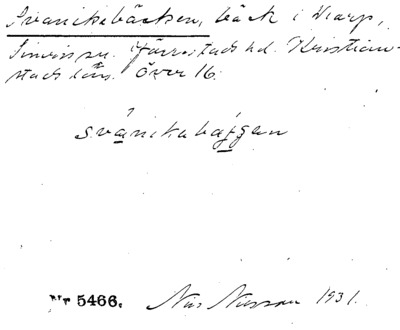 Svanickebäcken, bäck i Viarp,
Simris sn. Järrestads hd. Kristian-
stads län. Över 16.
svánickabäjgan
5466. Nils Nilsson 1931.